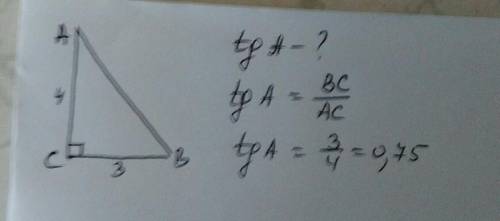 A
4
C
3
B
tg A - ?
tg A = BC/AC
tg A = 3/4 = 0,75